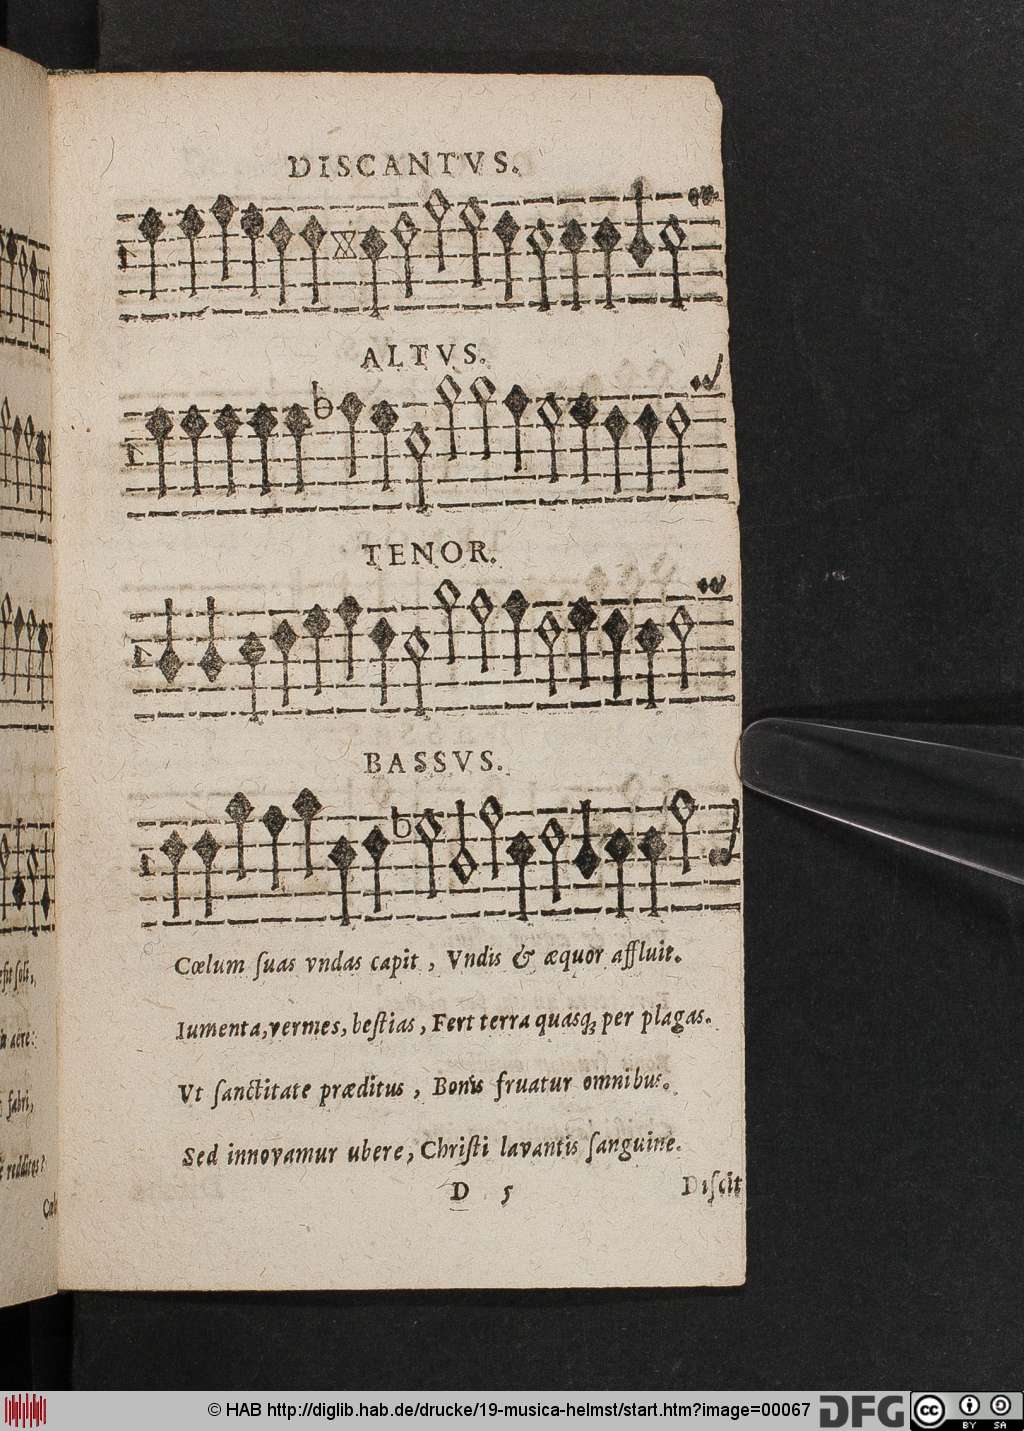 DISCANTVS.
ALTVS.
TENOR.
BASSVS.
Cœlum ſuas vndas capit, Vndis & æquor affluit.
Iumenta, vermes, beſtias, Fert terra quasq; per plagas.
Vt ſanctitate præditus, Bonis fruatur omnibus.
Sed innovamur ubere, Chriſti lavantis ſanguine.
D 5
Diſcit
ſoli,
aëre:
fabri,
© HAB http://diglib.hab.de/drucke/19-musica-helmst/start.htm?image=00067
DFG
cc
BY SA